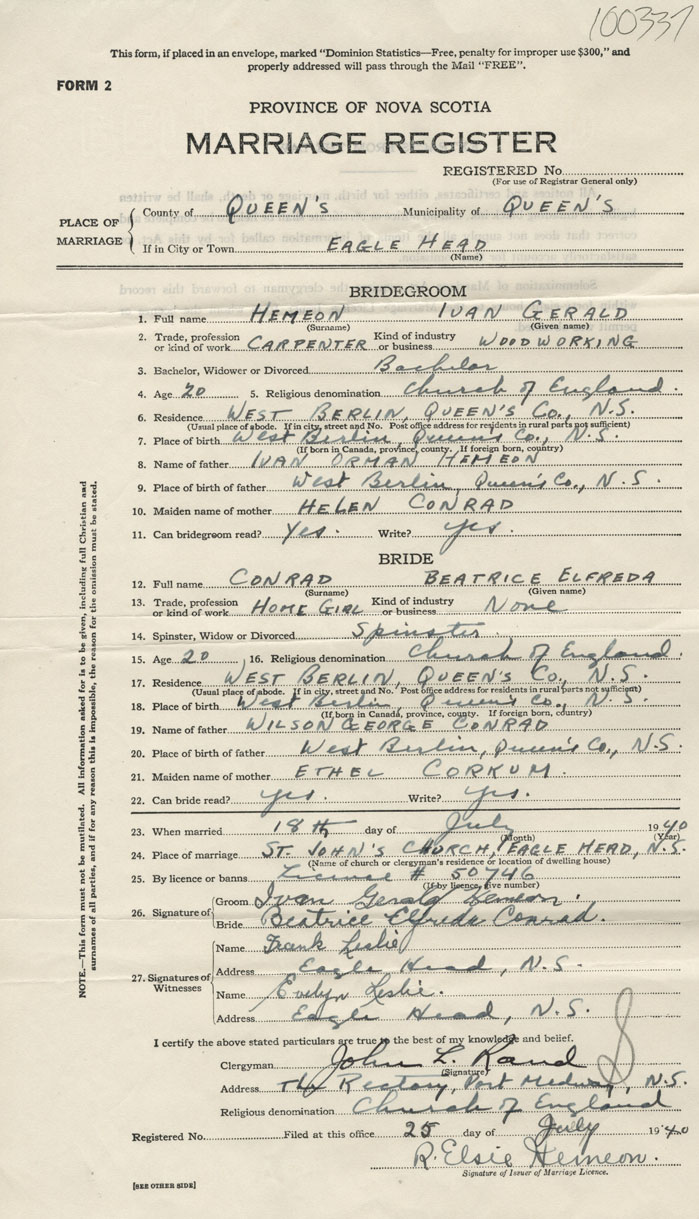 100337
This form, if placed in an envelope, marked "Dominion Statistics—Free, penalty for improper use $300," and
properly addressed will pass through the Mail "FREE".
FORM 2
PROVINCE OF NOVA SCOTIA
MARRIAGE REGISTER
REGISTERED No.
(For use of Registrar General only)
PLACE OF MARRIAGE
County of QUEEN'S Municipality of QUEEN'S
If in City or Town EAGLE HEAD
(Name)
BRIDEGROOM
1. Full name HEMEON IVAN GERALD
(Surname) (Given name)
2. Trade, profession or kind of work CARPENTER Kind of industry or business WOODWORKING
3. Bachelor, Widower or Divorced Bachelor
4. Age 20 5. Religious denomination Church of England.
6. Residence WEST BERLIN, QUEEN'S Co., N.S.
(Usual place of abode. If in city, street and No. Post office address for residents in rural parts not sufficient)
7. Place of birth West Berlin, Queen's Co., N.S.
(If born in Canada, province, county. If foreign born, country)
8. Name of father IVAN ORMAN HEMEON
9. Place of birth of father West Berlin, Queen's Co., N.S.
10. Maiden name of mother HELEN CONRAD
11. Can bridegroom read? Yes. Write? yes.
BRIDE
12. Full name CONRAD BEATRICE ELFREDA
(Surname) (Given name)
13. Trade, profession or kind of work HOME GIRL Kind of industry or business None
14. Spinster, Widow or Divorced Spinster.
15. Age 20 16. Religious denomination Church of England.
17. Residence WEST BERLIN, QUEEN'S Co., N.S.
(Usual place of abode. If in city, street and No. Post office address for residents in rural parts not sufficient)
18. Place of birth West Berlin, Queen's Co., N.S.
(If born in Canada, province, county. If foreign born, country)
19. Name of father WILSON GEORGE CONRAD
20. Place of birth of father West Berlin, Queen's Co., N.S.
21. Maiden name of mother ETHEL CORKUM.
22. Can bride read? yes. Write? yes.
23. When married 18th day of July 1940
(Month) (Year)
24. Place of marriage ST. JOHN'S CHURCH, EAGLE HEAD, N.S.
(Name of church or clergyman's residence or location of dwelling house)
25. By licence or banns License # 50746
(If by licence, give number)
26. Signature of
Groom Ivan Gerald Hemeon.
Bride Beatrice Elfreda Conrad.
27. Signatures of Witnesses
Name Frank Leslie
Address Eagle Head, N.S.
Name Evelyn Leslie.
Address Eagle Head, N.S.
I certify the above stated particulars are true to the best of my knowledge and belief.
Clergyman John L. Rand
(Signature)
Address The Rectory, Port Medway, N.S.
Religious denomination Church of England
Registered No. Filed at this office 25 day of July 1940
R. Elsie Hemeon.
Signature of Issuer of Marriage Licence.
[SEE OTHER SIDE]
NOTE.—This form must not be mutilated. All information asked for is to be given, including full Christian and
surnames of all parties, and if for any reason this is impossible, the reason for the omission must be stated.